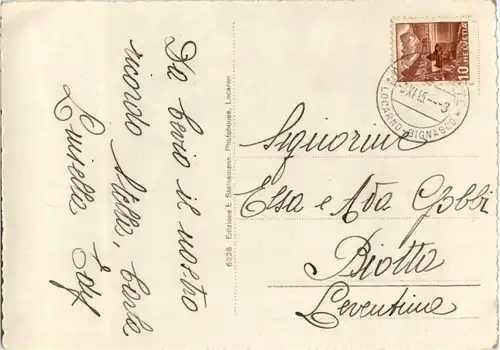 Da Cevio il nostro
ricordo Stella, Carla
Luisella Edy
6226 Edizione E. Steinemann, Photohouse, Locarno
10 HELVETIA
LOCARNO-BIGNASCO
Signorine
Elsa e Ada Gobbi
Piotta
Leventina